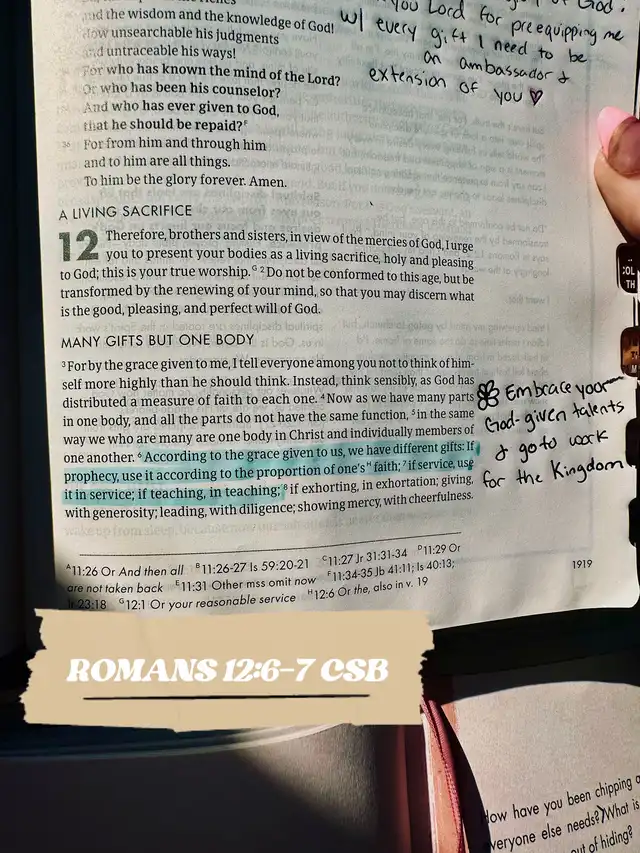 and the wisdom and the knowledge of God!
How unsearchable his judgments
and untraceable his ways!
For who has known the mind of the Lord?
Or who has been his counselor?
And who has ever given to God,
that he should be repaid?F
36 For from him and through him
and to him are all things.
To him be the glory forever. Amen.
you Lord for preequipping me
w/ every gift I need to be
an ambassador &
extension of you ♡
A LIVING SACRIFICE
12 Therefore, brothers and sisters, in view of the mercies of God, I urge
you to present your bodies as a living sacrifice, holy and pleasing
to God; this is your true worship.G 2 Do not be conformed to this age, but be
transformed by the renewing of your mind, so that you may discern what
is the good, pleasing, and perfect will of God.
MANY GIFTS BUT ONE BODY
3 For by the grace given to me, I tell everyone among you not to think of him-
self more highly than he should think. Instead, think sensibly, as God has
distributed a measure of faith to each one. 4 Now as we have many parts
in one body, and all the parts do not have the same function, 5 in the same
way we who are many are one body in Christ and individually members of
one another. 6 According to the grace given to us, we have different gifts: If
prophecy, use it according to the proportion of one'sH faith; 7 if service, use
it in service; if teaching, in teaching; 8 if exhorting, in exhortation; giving,
with generosity; leading, with diligence; showing mercy, with cheerfulness.
Embrace your
God-given talents
& go to work
for the Kingdom
A11:26 Or And then all B11:26-27 Is 59:20-21 C11:27 Jr 31:31-34 D11:29 Or
are not taken back E11:31 Other mss omit now F11:34-35 Jb 41:11; Is 40:13;
Jr 23:18 G12:1 Or your reasonable service H12:6 Or the, also in v. 19
1919
ROMANS 12:6-7 CSB
How have you been chipping
everyone else needs? What is
out of hiding?